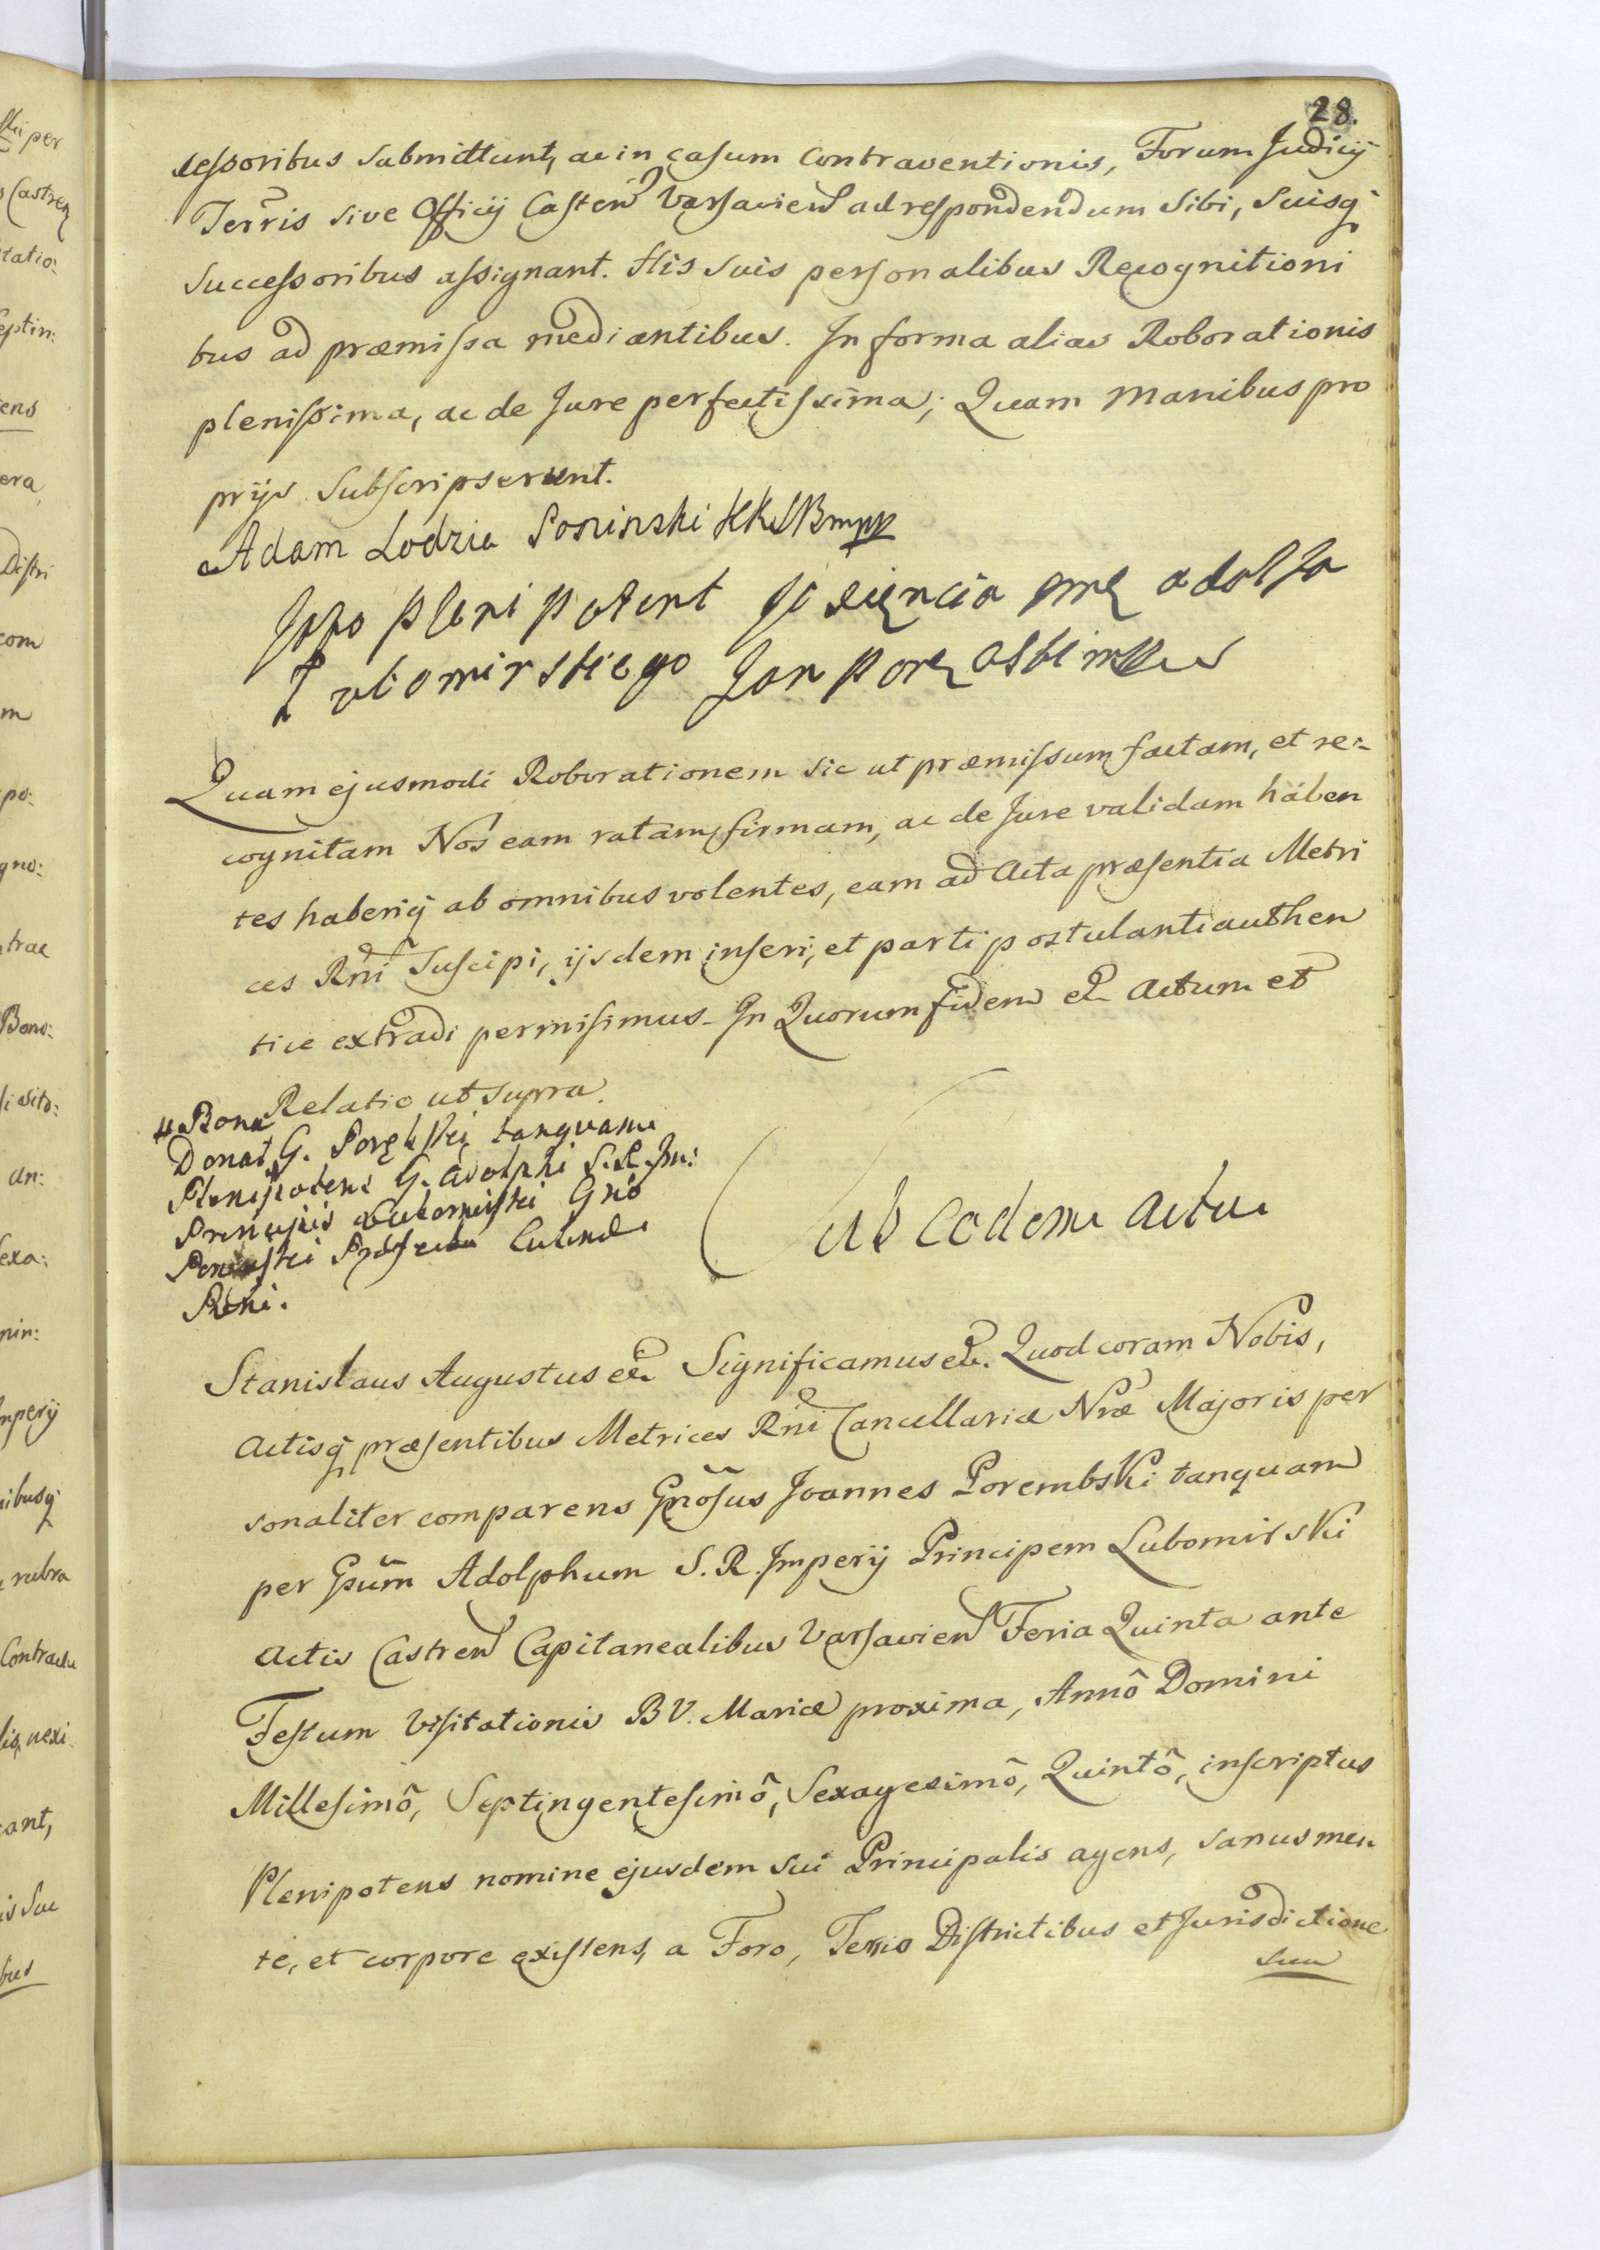 28.
cessoribus submittunt, ac in casum contraventionis, Forum Judicij
Terris sive Officij Castren Varsavien ad respondendum sibi, suisq
successoribus assignant. His suis personalibus Recognitioni
bus ad præmissa mediantibus. In forma alias Roborationis
plenissima, ac de Jure perfectissima; Quam manibus pro
prijs subscripserunt.
Adam Lodzia Poninski KKJBmpp
Jako plenipotent Xiencia Adolfa
Lubomirskiego Jan Porembski
Quam ejusmodi Roborationem sic ut præmissum factam, et re:
cognitam Nos eam ratam, firmam, ac de Jure validam haben
tes haberiq ab omnibus volentes, eam ad Acta præsentia Metri
ces Rni Suscipi, ijsdem inseri, et parti postulanti authen
tice extradi permisimus. In Quorum fidem et Actum et
Relatio ut supra.
# Bona
Donat G. Porębski tanquam
Plenipotens G. Adolphi S. R. Im:
Principis Lubomirski Gno
Poninski Præfecto Culinæ
Rni.
Sub eodem actu
Stanislaus Augustus et Significamus et. Quod coram Nobis,
Actisq præsentibus Metrices Rni Cancellariæ Nræ Majoris per
sonaliter comparens Gnosus Joannes Porembski tanquam
per Gsum Adolphum S. R. Imperij Principem Lubomirski
Actis Castren Capitanealibus Varsavien Feria Quinta ante
Festum Visitationis B V. Mariæ proxima, Annô Domini
Millesimô, Septingentesimô, Sexagesimô, Quintô, inscriptus
Plenipotens nomine ejusdem sui Principalis agens, sanus men
te, et corpore existens, a Foro, Terris Districtibus et Jurisdictione
sua